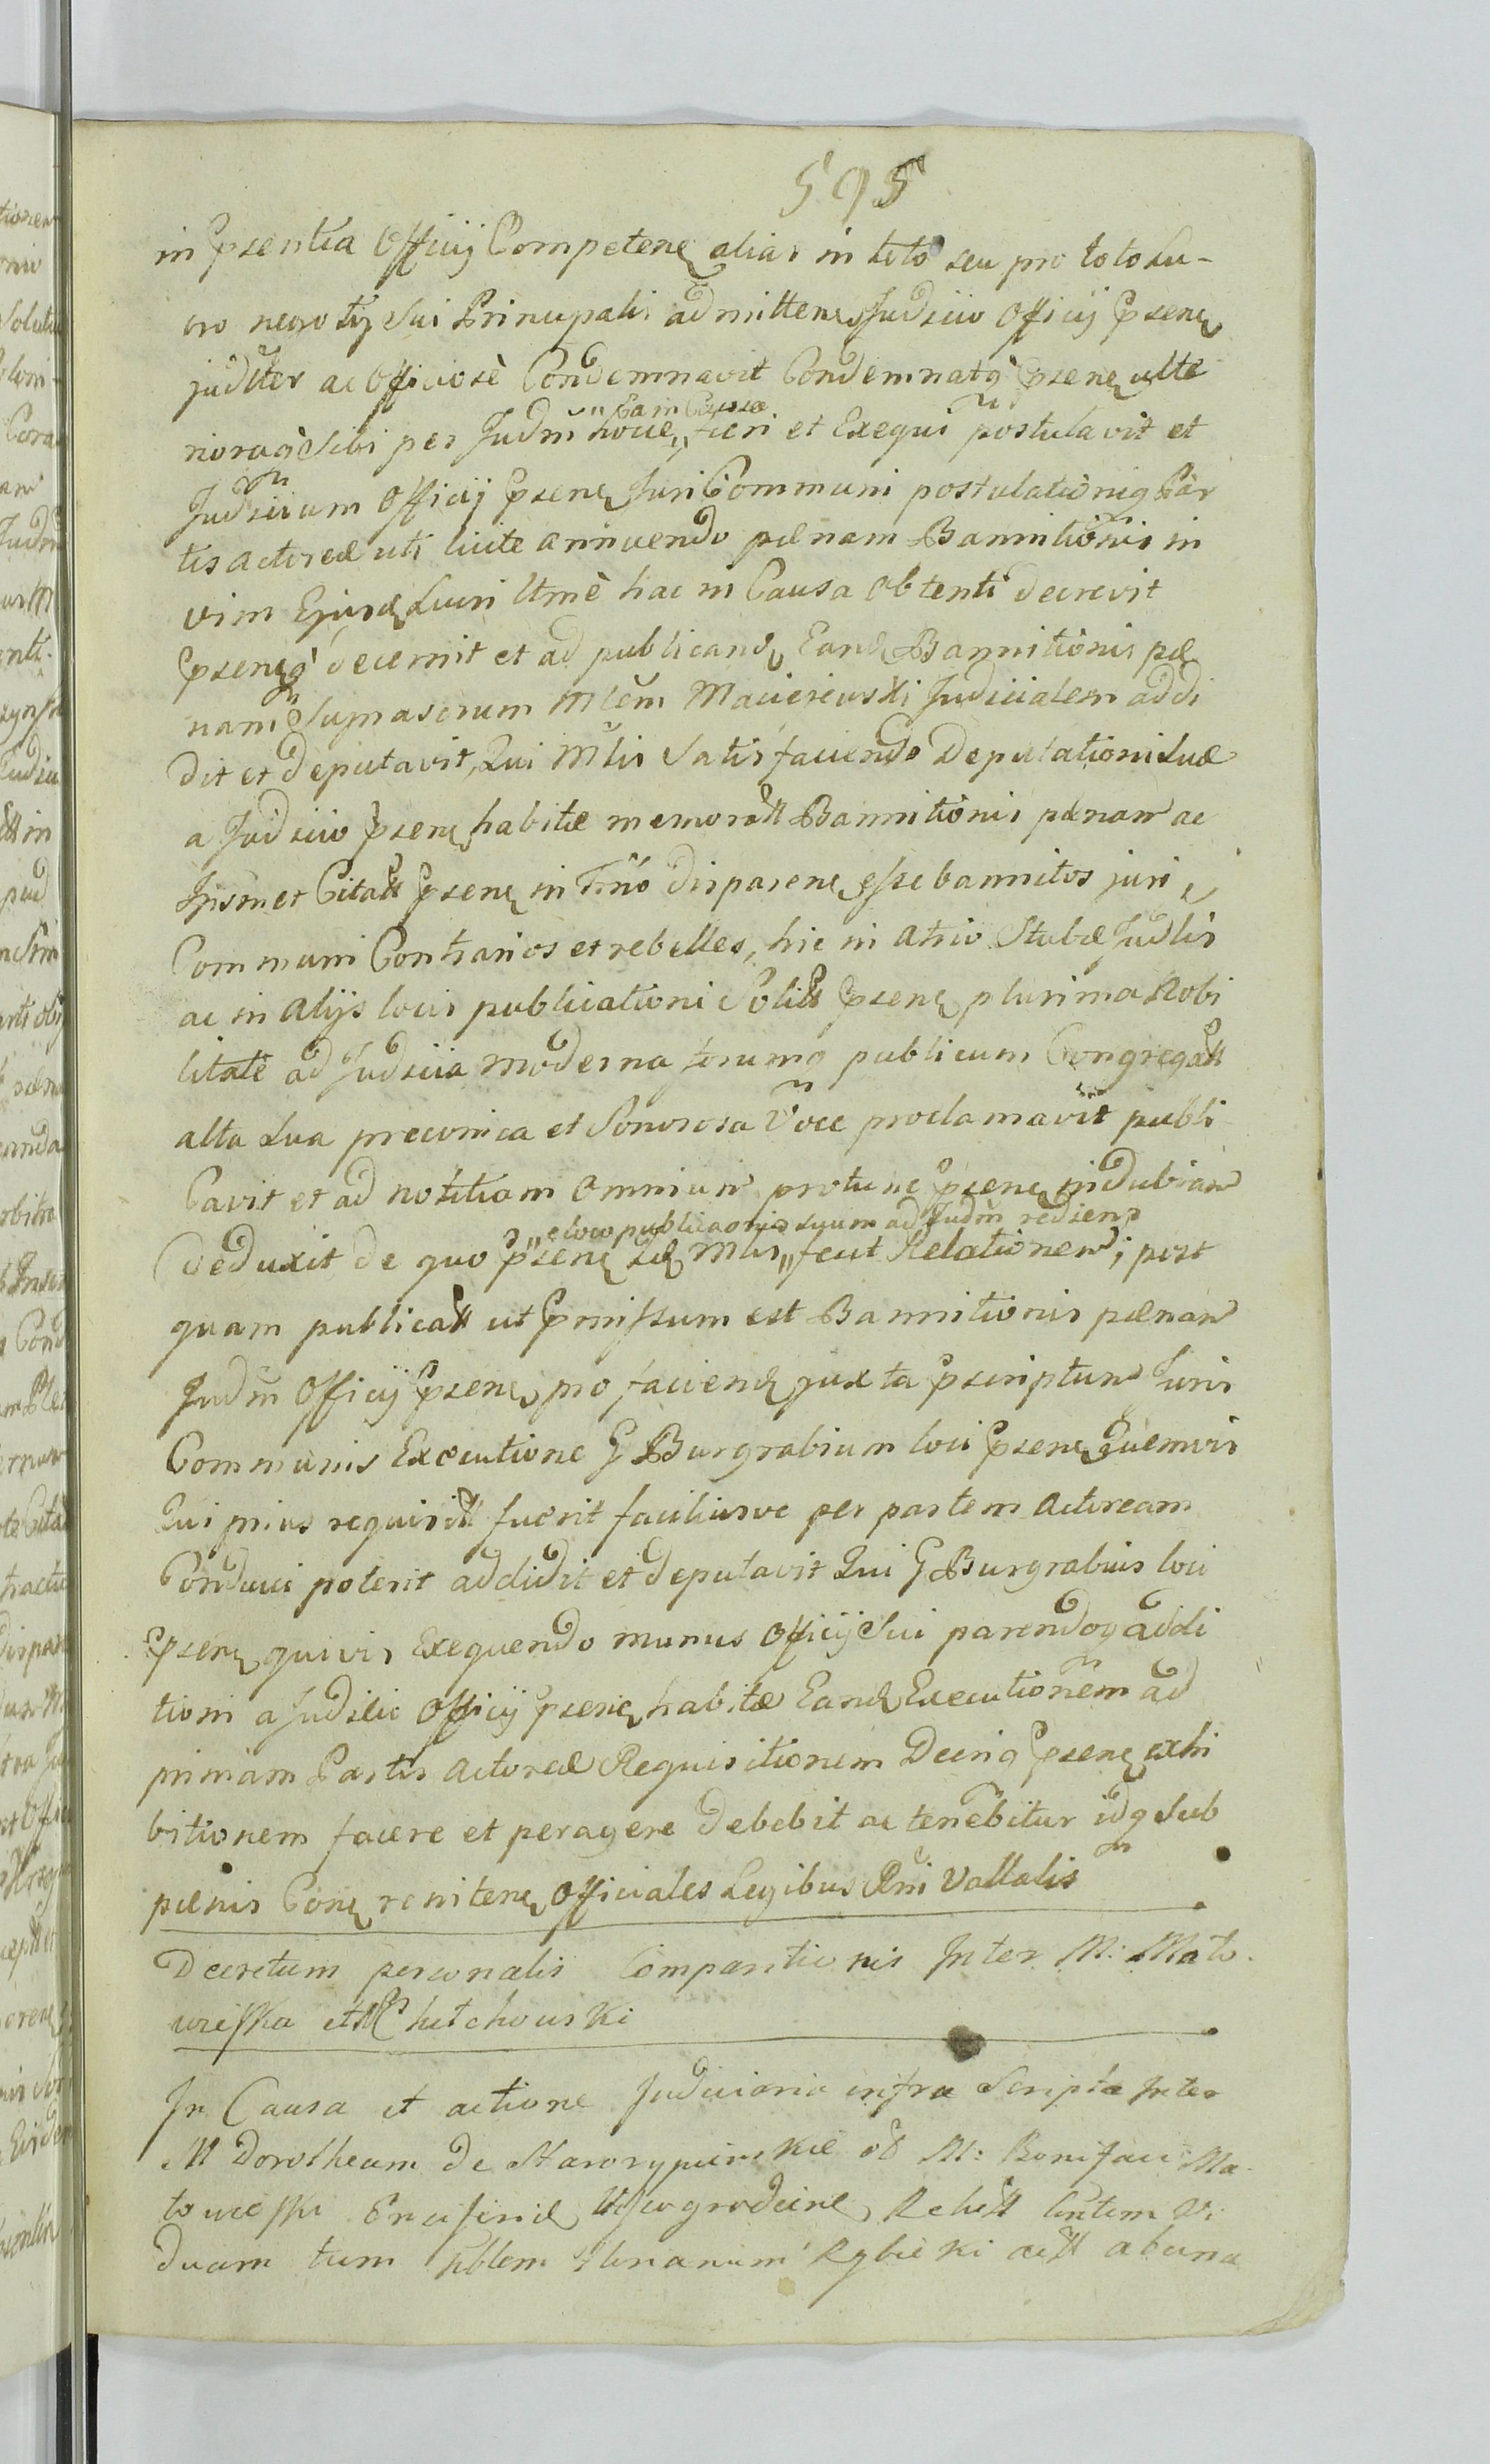 595
in Psentia Officij Competenę alias in toto seu pro toto Lu-
cro negotij Sui Principalis admittenę Judiciio Officij Psenę
juditer ac Officiosè Condemnavit Condemnatq̀ Psenę ulte
rioraq̀ sibi per Judm hoce „Ea in Causa„ fieri et Exequi postulavit et
Judicium Officij Psenę Juri Communi postulationiq Par
tis actoreæ uti licite annuendo pænam Bannitionis in
vim Ejusdę Lucri Ltmè hac in Causa Obtenti decrevit
Psenęq̀ decernit et ad publicandę Eandę Bannitionis pæ
nam Mlem Macierewski Judicialem addi
dit et deputavit, Qui Mlis Satisfaciendo Deputationi Suæ
a Judicio Psenę habitæ memoratt Bannitionis pænam ac
Ipsmet Citatt Psenę in Trno disparenę esse bannitos juri
Communi Contrarios et rebelles, hic in atrio Stubæ Judlis
ac in alijs locis publicationi Solitt Psenę plurima Nobi
litate ad Judicia moderna forumq publicum Congregatt
alta Sua preconica et Sonorosa Voce proclamavit publi
Cavit et ad notitiam omnium protunc Psenę indubiam
Deduxit de quo Psenę idę Mlis „e loco publicaonis suum ad Judm rediens„ fecit Relationem; post
quam publicatt ut Pmissum est Bannitionis pænam
Judm Officij Psenę pro faciendę juxta Pscriptum Juris
Communis Executione G Burgrabium loci Psenę Quemvis
Qui prius requisitt fuerit faciliusve per partem Actoream
Conduci poterit addidit et deputavit Qui G Burgrabius loci
Psenę quivis Exequendo munus Officij Sui parendoq addi
tioni a Judicio Officij Psenę habitæ Eandę Executionem ad
primam Partis Actoreæ Requisitionem Decriq Psenę exhi
bitionem facere et peragere Debebit ac tenebitur idq Sub
pænis Conę renitenę Officiales Legibus Rni Vallatis
Decretum personalis Comparitionis Inter M: Mato
wieska et Chutchowski
In Causa et actione Judiciaria infra Scripta Inter
M Dorotheam De Starorypinskie od M: Bonifacij Ma-
towieski Ensiferidę Wisogrodeinę Relictt Vi
duam tum Nblem Rybicki actt ab una